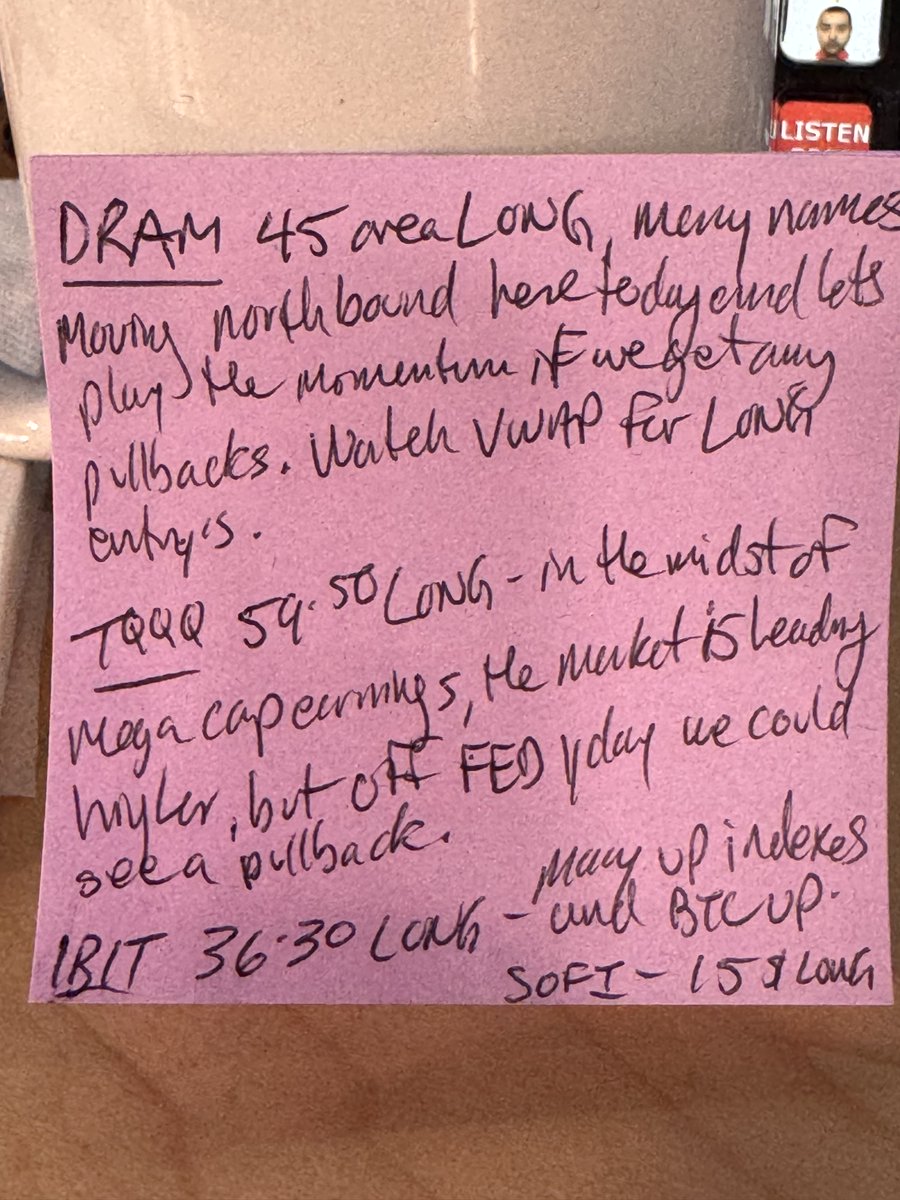 LISTEN
DRAM 45 area LONG, many names
moving northbound here today and lets
play the momentum if we get any
pullbacks. Watch VWAP for LONG
entry's.
TQQQ 59.50 LONG - in the midst of
mega cap earnings, the market is leading
higher, but off FED yday we could
see a pullback.
IBIT 36.30 LONG - Many up indexes
and BTC UP.
SOFI - 15$ LONG